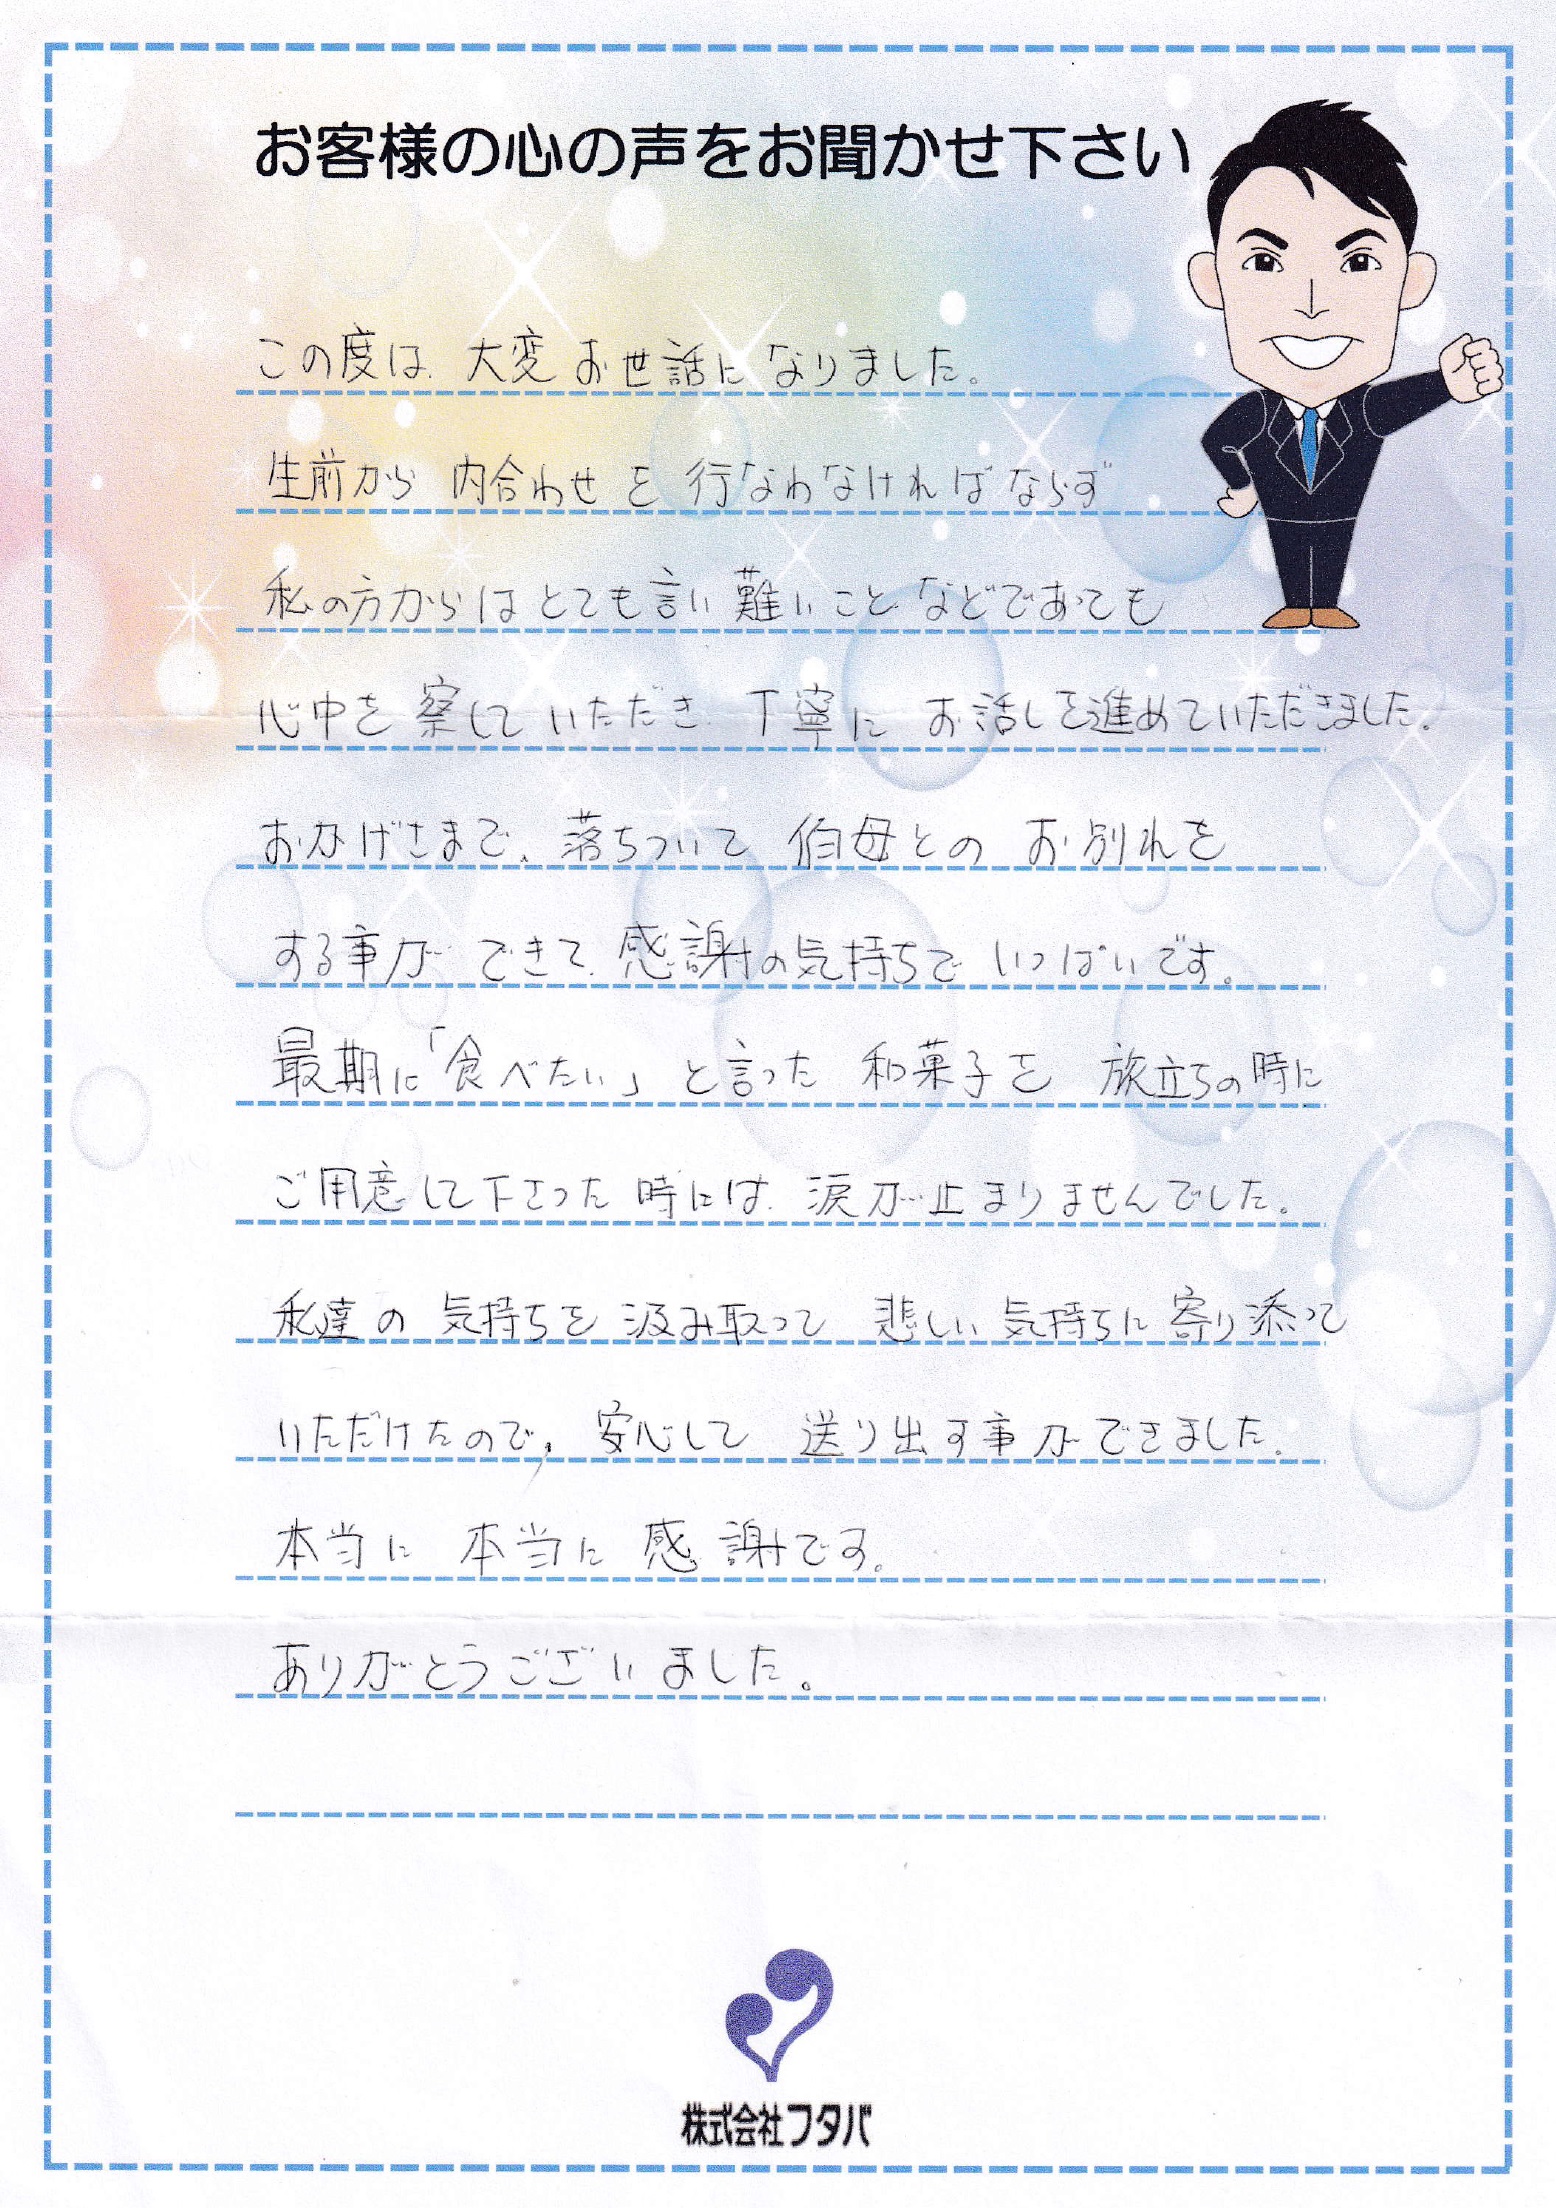 お客様の心の声をお聞かせ下さい
この度は、大変お世話になりました。
生前から 内合わせを 行なわなければならず
私の方からはとても言い難いことなどであっても
心中を察していただき 丁寧に お話しを進めていただきました。
おかげさまで、落ちついて 伯母との お別れを
する事が できて、感謝の気持ちで いっぱいです。
最期に「食べたい」と言った 和菓子を 旅立ちの時に
ご用意して下さった時には、涙が止まりませんでした。
私達の 気持ちを 汲み取って 悲しい 気持ちに 寄り添って
いただけたので、安心して 送り出す事ができました。
本当に 本当に 感謝です。
ありがとうございました。
株式会社フタバ